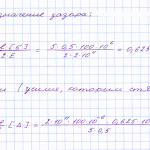 значение зазора:
[σ] / 2E = 5·0,5·100·10⁶ / 2·2·10¹¹ = 0,625
(усилие, которым стя
[Δ] = 2·10¹¹·100·10⁻⁶·0,625·10 / 5·0,5